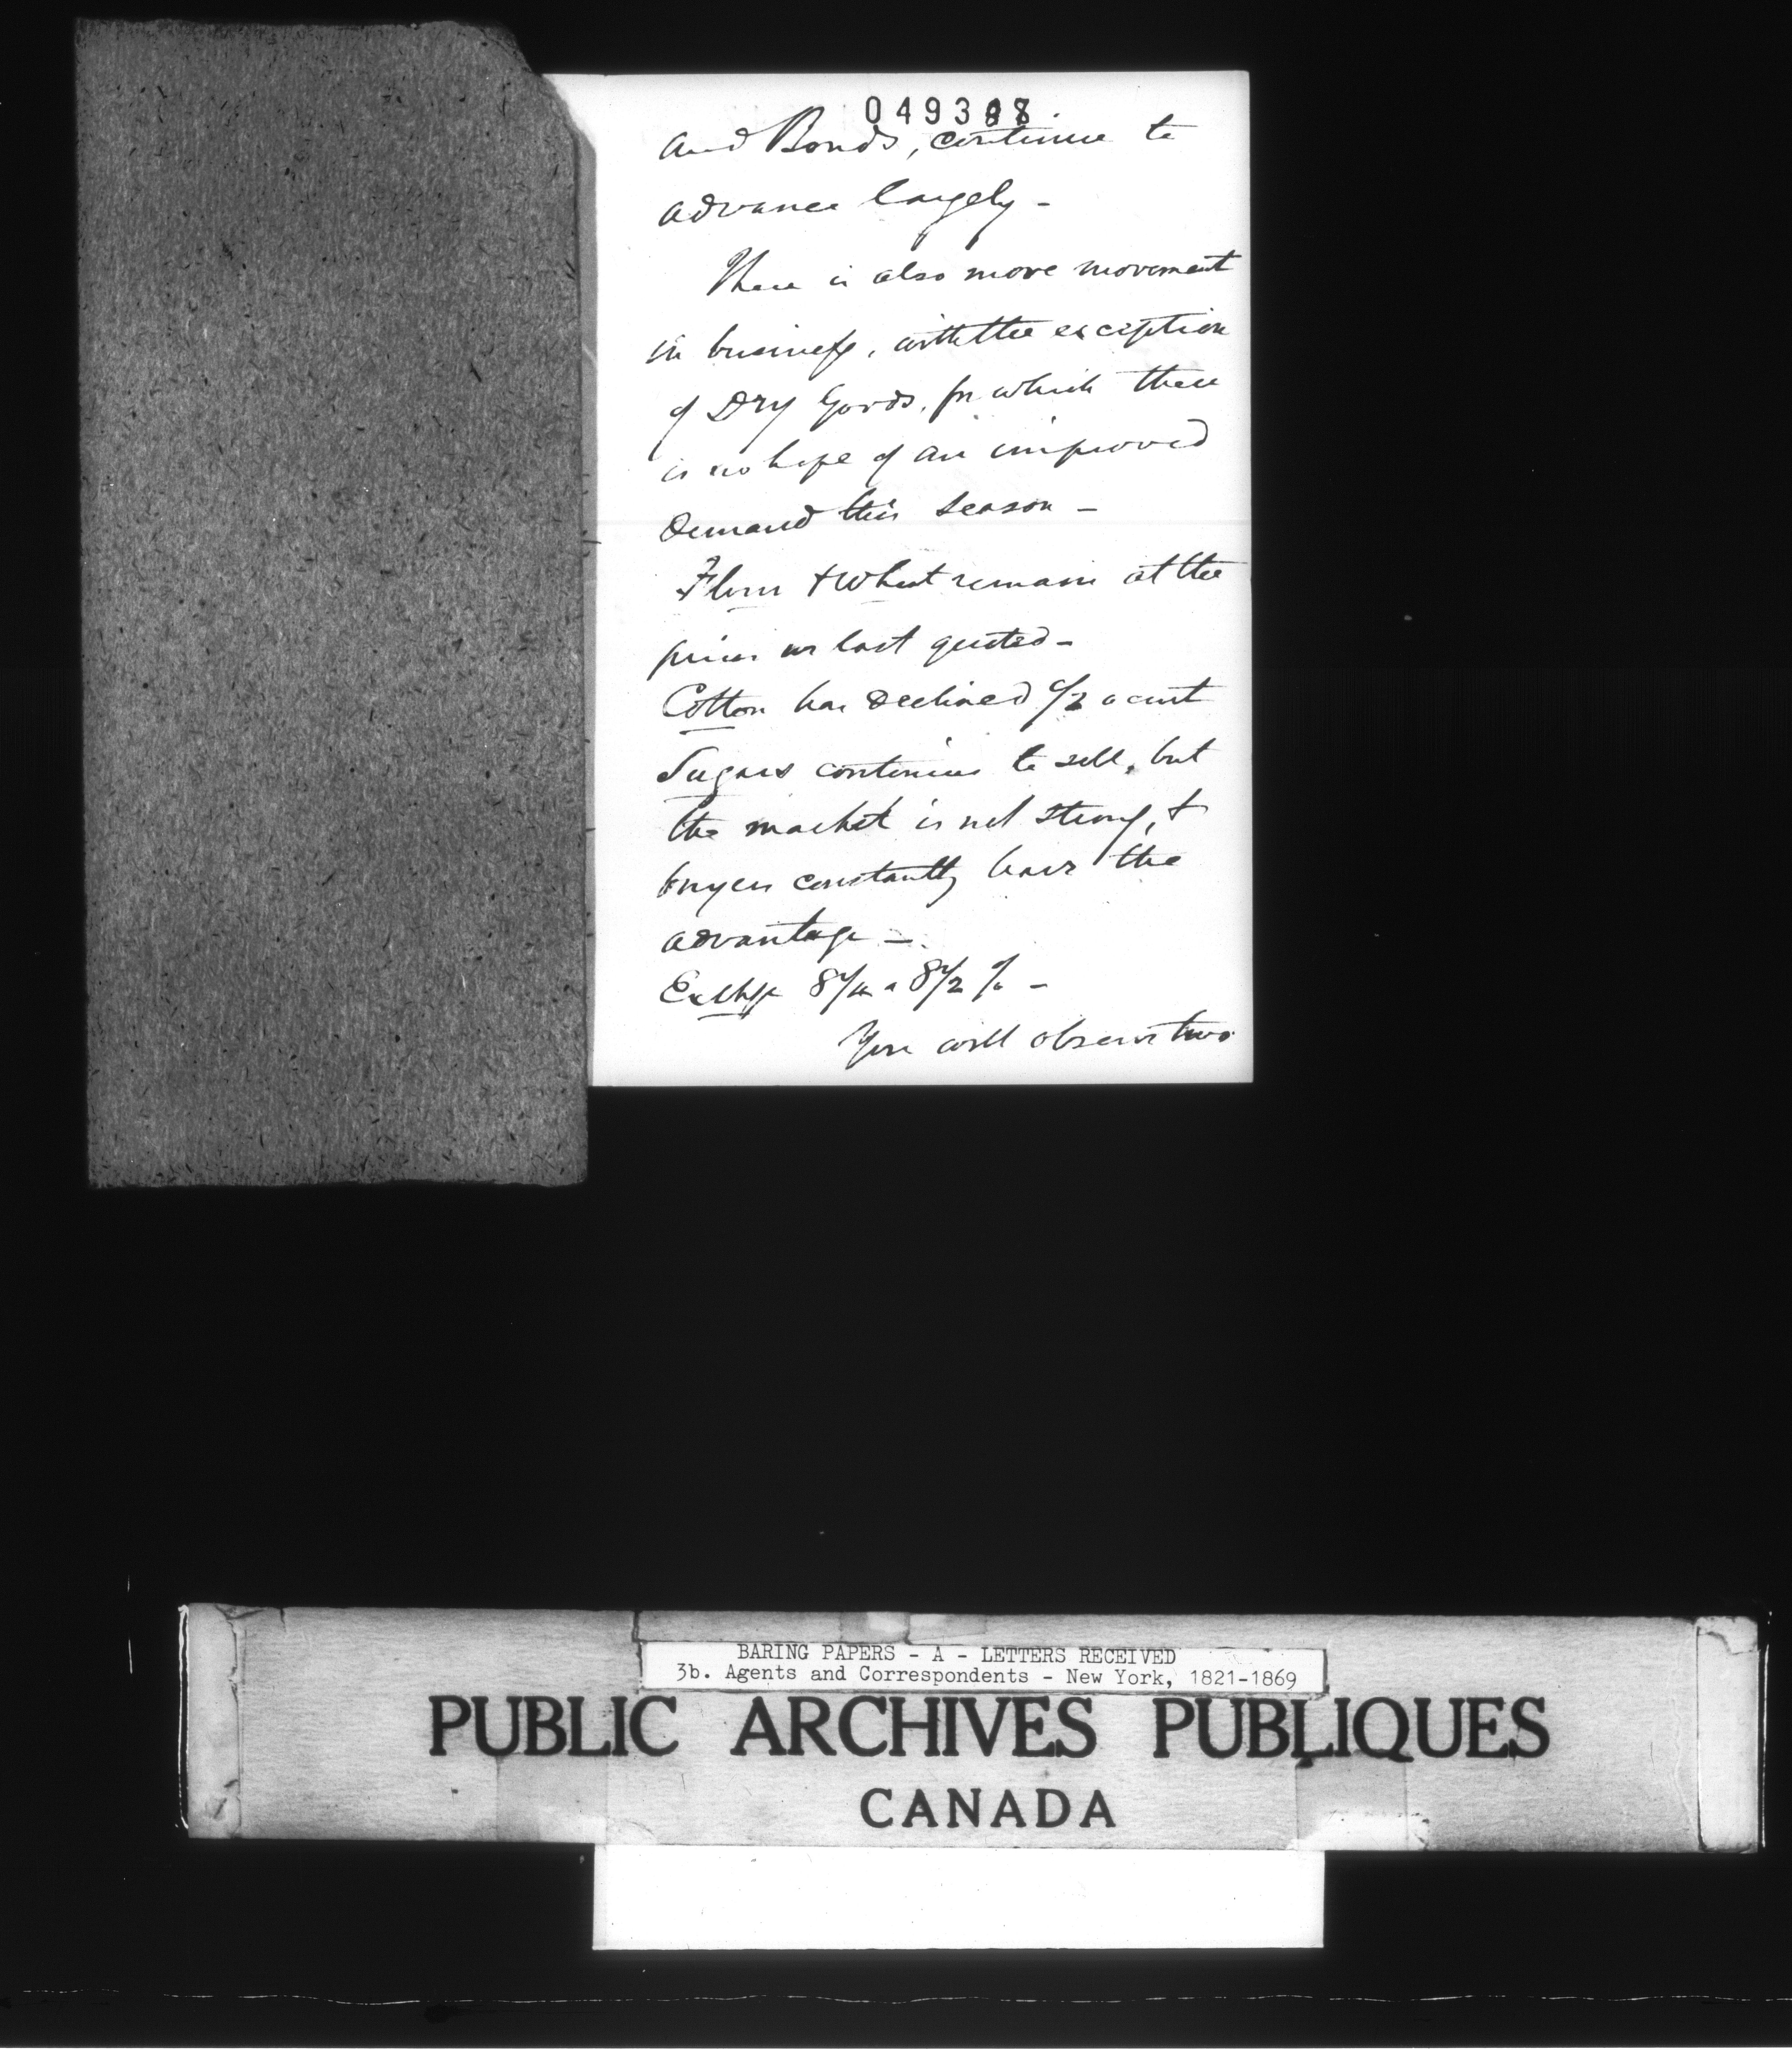 049387
and Bonds, continue to
advance largely -
There is also more movement
in business, with the exception
of Dry Goods, for which there
is no hope of an improved
demand this season -
Flour & Wheat remain at the
prices as last quoted -
Cotton has declined 1/2 a cent
Sugars continue to sell, but
the market is not strong, &
buyers constantly have the
advantage -
Exchge 8 1/4 a 8 1/2 % -
You will observe two
BARING PAPERS - A - LETTERS RECEIVED
3b. Agents and Correspondents - New York, 1821-1869
PUBLIC ARCHIVES PUBLIQUES
CANADA